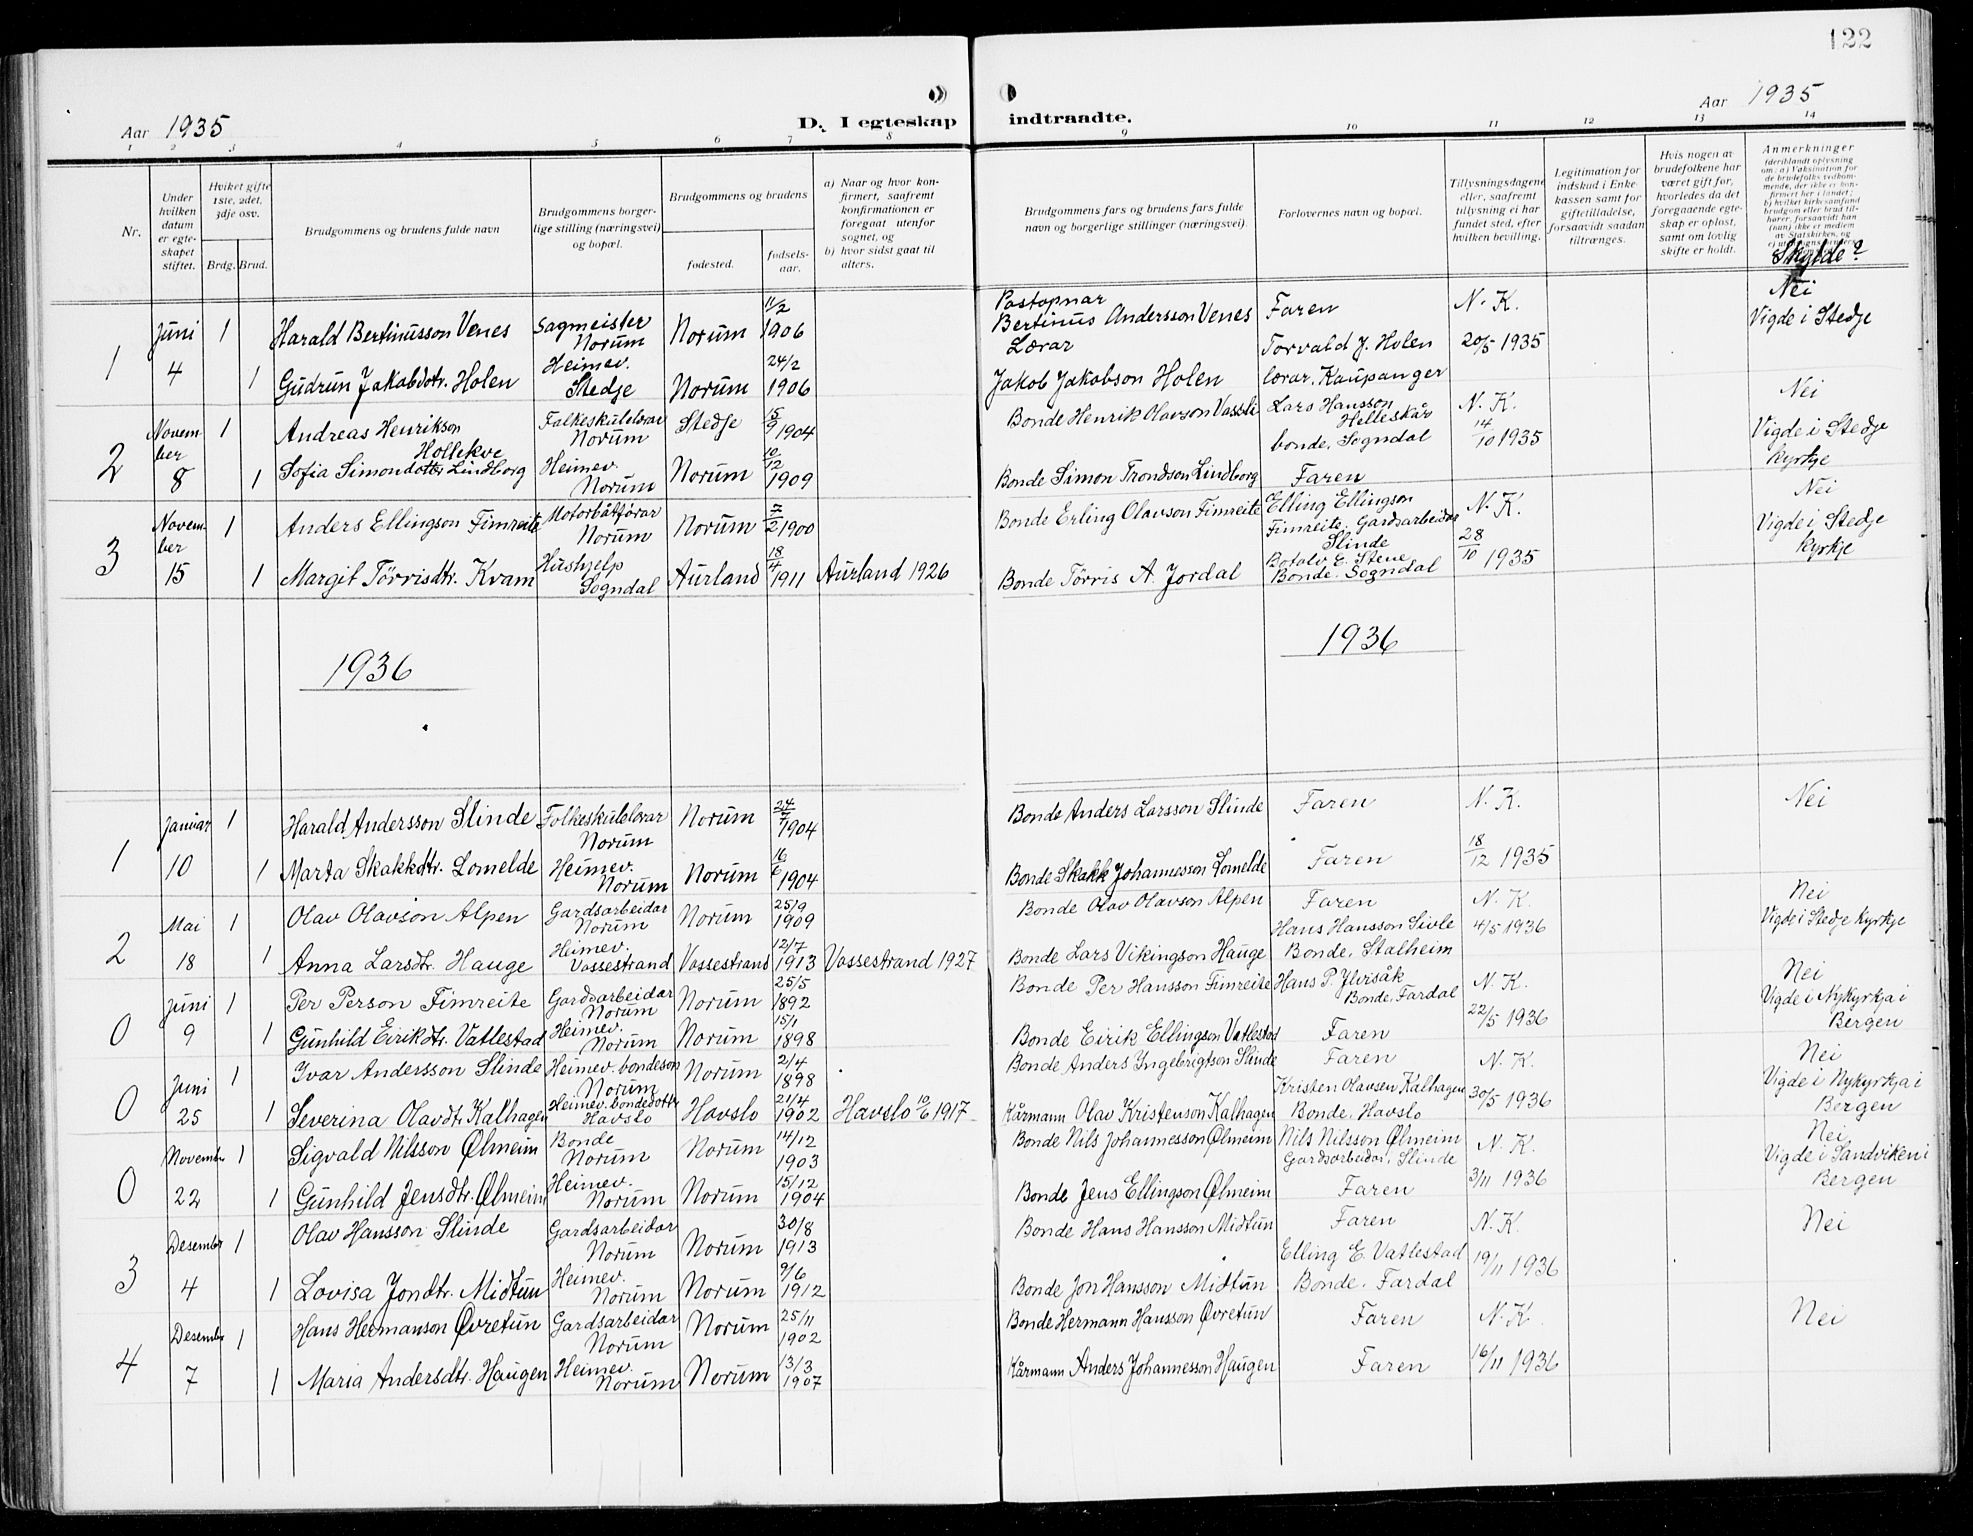 122
Aar 1935
D. I egteskap indtraadte.
Aar 1935
1 2 3 4 5 6 7 8 9 10 11 12 13 14
Nr.
Under hvilken datum er egteskapet stiftet.
Hviket gifte 1ste, 2det, 3dje osv.
Brdg. Brud.
Brudgommens og brudens fulde navn
Brudgommens borgerlige stilling (næringsvei) og bopæl.
Brudgommens og brudens
fødested.
fødselsaar.
a) Naar og hvor konfirmert, saafremt konfirmationen er foregaat utenfor sognet, og
b) hvor sidst gaat til alters.
Brudgommens fars og brudens fars fulde navn og borgerlige stillinger (næringsvei).
Forlovernes navn og bopæl.
Tillysningsdagene eller, saafremt tillysning ei har fundet sted, efter hvilken bevilling.
Legitimation for indskud i Enkekassen samt for giftetilladelse, forsaavidt saadan tiltrænges.
Hvis nogen av brudefolkene har været gift før, hvorledes da det foregaaende egteskap er opløst, samt om lovlig skifte er holdt.
Anmerkninger
Skylde?
1 Juni 4 1 Harald Bertinusson Venes Sagmeister Norum Norum 11/2 1906 Postopnar Bertinus Andersson Venes Faren N. K. Nei Vigde i Stedje
1 Gudrun Jakobdotr. Holen Heimev. Stedje Norum 24/2 1906 Lærar Jakob Jakobson Holen Torvald J. Holen lærar, Kaupanger 20/5 1935
2 November 8 1 Andreas Henrikson Hollekve Folkeskulelærar Norum Stedje 15/9 1904 Bonde Henrik Olavson Vassli Lars Hansson Helleskår bonde, Sogndal N. K. 14/10 1935 Nei Vigde i Stedje kyrkje
1 Sofia Simondottr Lindborg Heimev. Norum Norum 10/12 1909 Bonde Simon Trondson Lindborg Faren
3 November 15 1 Anders Ellingson Fimreite Motorbåtførar Norum Norum 7/2 1900 Bonde Erling Olavson Fimreite Elling Ellingson Fimreite. Gardsarbeidar Slinde N. K. Nei Vigde i Stedje kyrkje
1 Margit Tørrisdtr. Kvam Hushjelp Sogndal Aurland 18/4 1911 Aurland 1926 Bonde Tørris A. Jordal Botolv E. Stene Bonde. Sogndal 28/10 1935
1936
1936
1 Januar 10 1 Harald Andersson Slinde Folkeskulelærar Norum Norum 24/7 1904 Bonde Anders Larsson Slinde Faren N. K. Nei
1 Marta Skakkdtr. Lomelde Heimev. Norum Norum 16/6 1904 Bonde Skakk Johannesson Lomelde Faren 18/12 1935
2 Mai 18 1 Olav Olavson Alpen Gardsarbeidar Norum Norum 25/9 1909 Bonde Olav Olavson Alpen Faren N. K. Nei Vigde i Stedje kyrkje
1 Anna Larsdtr. Hauge Heimev. Vossestrand Vossestrand 12/7 1913 Vossestrand 1927 Bonde Lars Vikingson Hauge Hans Hansson Sivle Bonde. Stalheim 4/5 1936
0 Juni 9 1 Per Person Fimreite Gardsarbeidar Norum Norum 25/5 1892 Bonde Per Hansson Fimreite Hans P. Ylvisåk Bonde, Fardal N. K. Nei Vigde i Nykyrkja i Bergen
1 Gunhild Eirikdtr. Vatlestad Heimev. Norum Norum 15/1 1898 Bonde Eirik Ellingson Vatlestad Faren 22/5 1936
0 Juni 25 1 Ivar Andersson Slinde Heimev. bondeson Norum Norum 2/4 1898 Bonde Anders Ingebrigtson Slinde Faren N. K. Nei Vigde i Nykyrkja i Bergen
1 Severina Olavdtr Kalhagen Heimev. bondedottr Havslo Havslo 21/4 1902 Havslo 10/6 1917 Kårmann Olav Kristenson Kalhagen Kristen Olavsen Kalhagen Bonde. Havslo 30/5 1936
0 November 22 1 Sigvald Nilsson Ølmeim Bonde Norum Norum 14/12 1903 Bonde Nils Johannesson Ølmeim Nils Nilsson Ølmeim Gardsarbeidar, Slinde N. K. Nei Vigde i Sandviken i Bergen
1 Gunhild Jensdtr. Ølmeim Heimev. Norum Norum 15/12 1904 Bonde Jens Ellingson Ølmeim Faren 3/11 1936
3 Desember 4 1 Olav Hansson Slinde Gardsarbeidar Norum Norum 30/8 1913 Bonde Hans Hansson Midtun Faren N. K. Nei
1 Lovisa Jondtr. Midtun Heimev. Norum Norum 9/6 1912 Bonde Jon Hansson Midtun Elling E. Vatlestad Bonde. Fardal 19/11 1936
4 Desember 7 1 Hans Hermanson Øvretun Gardsarbeidar Norum Norum 25/11 1902 Bonde Hermann Hansson Øvretun Faren N. K. Nei
1 Maria Andersdtr. Haugen Heimev. Norum Norum 13/3 1907 Kårmann Anders Johannesson Haugen Faren 16/11 1936